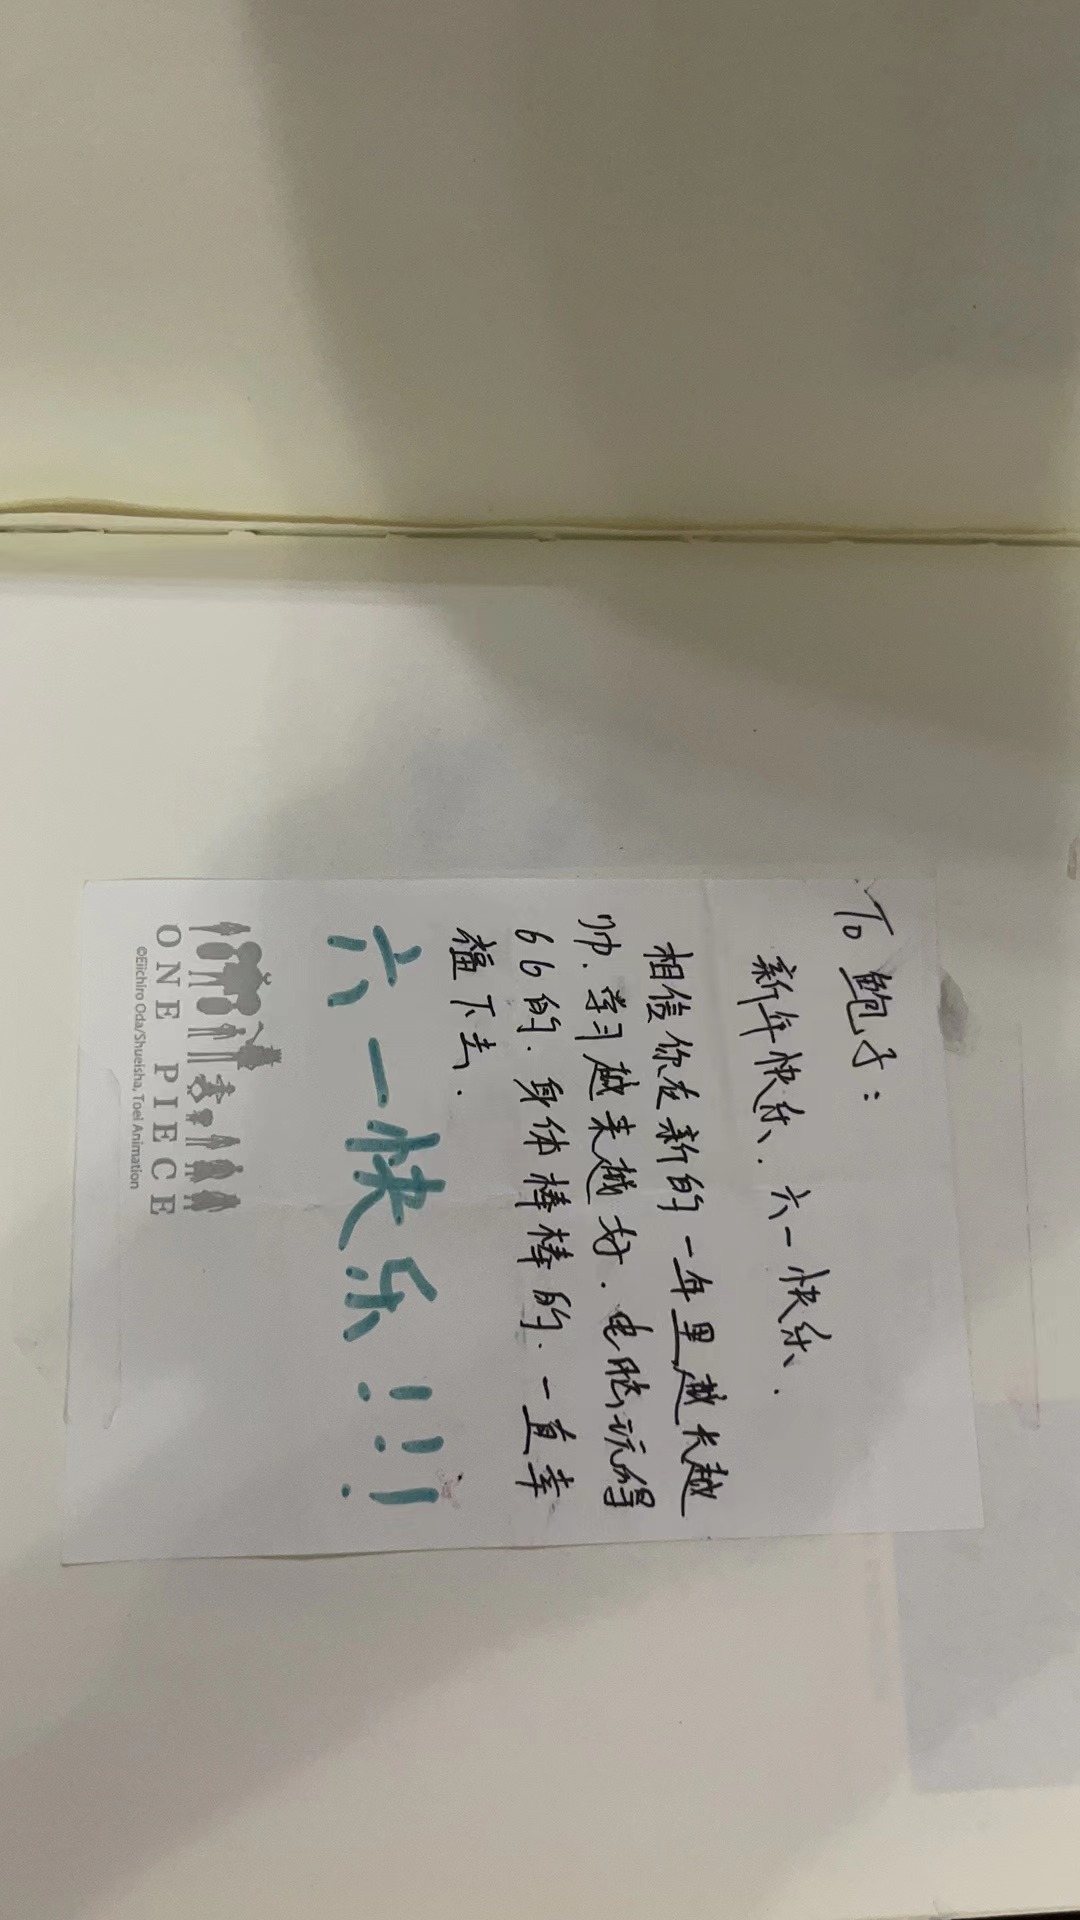 To 鲍子：
新年快乐．六一快乐．
相信你在新的一年里越长越
帅．学习越来越好．电脑玩得
66的．身体棒棒的．一直幸
福下去．
六一快乐！！！
ONE PIECE
©Eiichiro Oda/Shueisha, Toei Animation